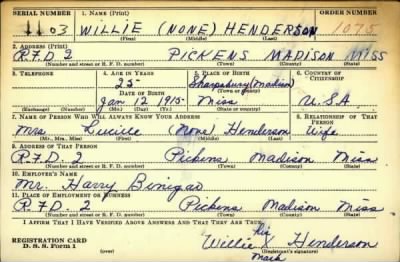 SERIAL NUMBER 1. NAME (Print) ORDER NUMBER
1103 WILLIE (NONE) HENDERSON 1075
(First) (Middle) (Last)
2. ADDRESS (Print)
R.F.D 2 PICKENS MADISON MISS
(Number and street or R. F. D. number) (Town) (County) (State)
3. TELEPHONE 4. AGE IN YEARS 5. PLACE OF BIRTH 6. COUNTRY OF CITIZENSHIP
25 Sharpsburg (Madison)
DATE OF BIRTH (Town or county)
Jan 12 1915 Miss U.S.A
(Exchange) (Number) (Mo.) (Day) (Yr.) (State or country)
7. NAME OF PERSON WHO WILL ALWAYS KNOW YOUR ADDRESS 8. RELATIONSHIP OF THAT PERSON
Mrs Lucille (None) Henderson Wife
(Mr., Mrs., Miss) (First) (Middle) (Last)
9. ADDRESS OF THAT PERSON
R.F.D. 2 Pickens Madison Miss
(Number and street or R. F. D. number) (Town) (County) (State)
10. EMPLOYER'S NAME
Mr. Harry
11. PLACE OF EMPLOYMENT OR BUSINESS
R.F.D. 2 Pickens Madison Miss
(Number and street or R. F. D. number) (Town) (County) (State)
I AFFIRM THAT I HAVE VERIFIED ABOVE ANSWERS AND THAT THEY ARE TRUE.
REGISTRATION CARD his
D. S. S. Form 1 Willie X Henderson
(Registrant's signature)
mark